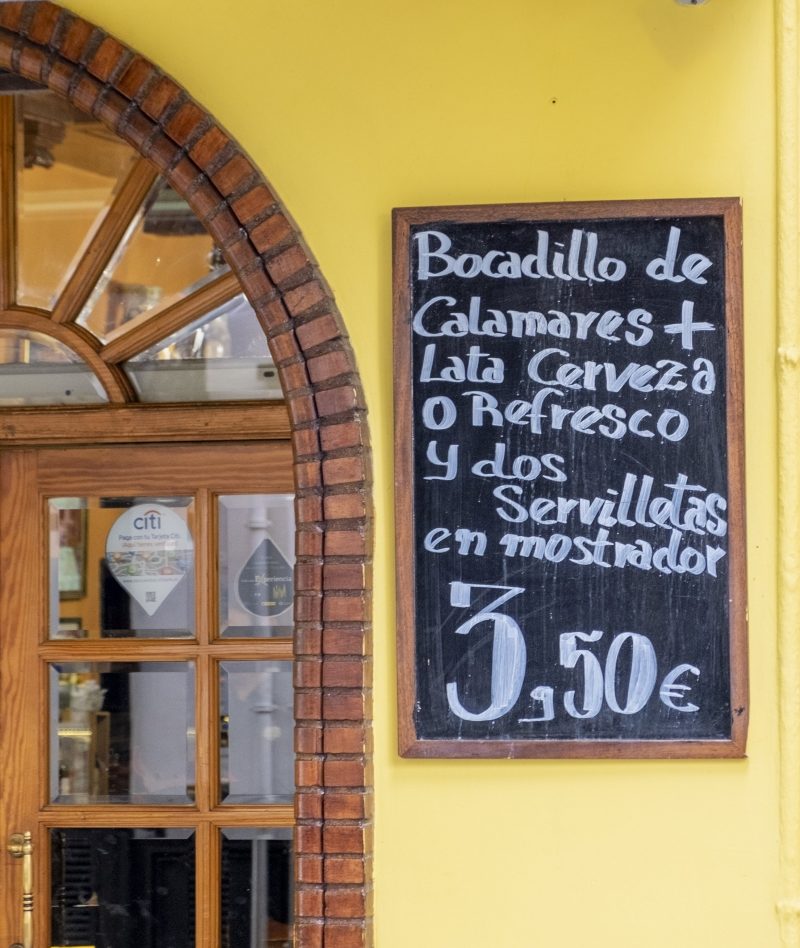 Bocadillo de
Calamares +
Lata Cerveza
o Refresco
y dos
Servilletas
en mostrador
3,50€
citi
Paga con tu Tarjeta Citi